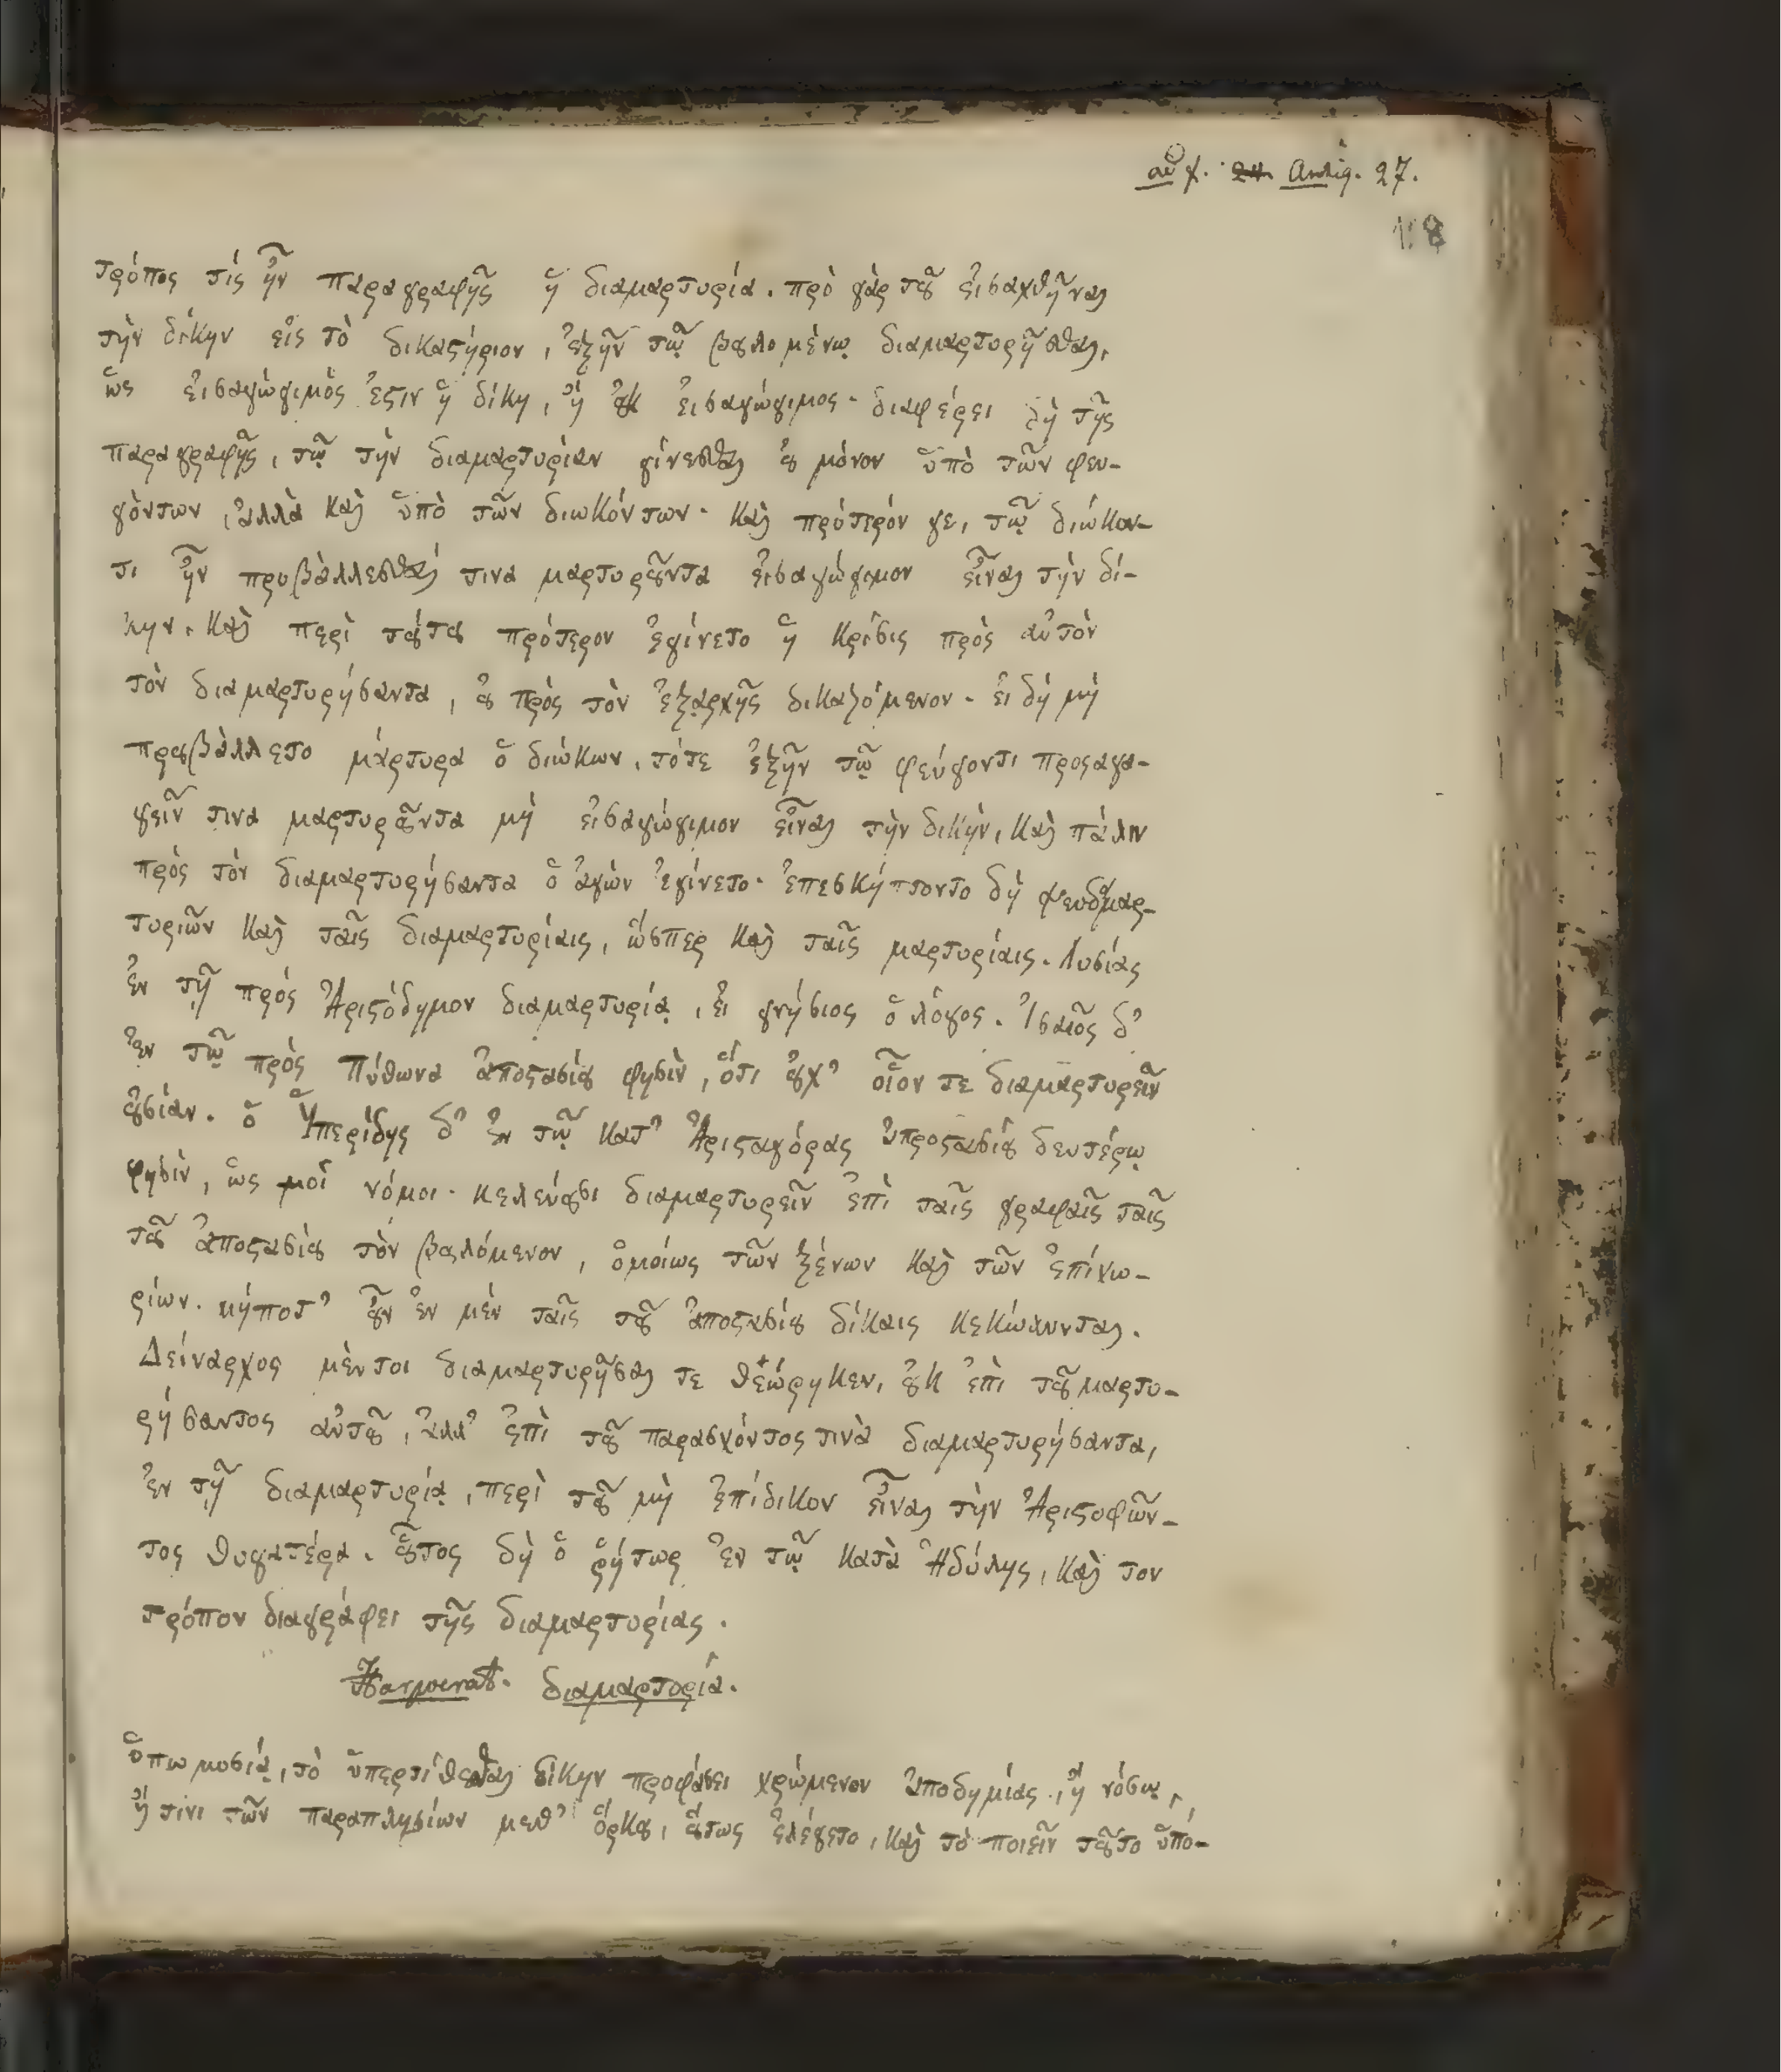 Antiq. 27.
118
τρόπος τίς ἦν παραγραφῆς ἡ διαμαρτυρία. πρὸ γὰρ τοῦ εἰσαχθῆναι
τὴν δίκην εἰς τὸ δικαστήριον, ἐξῆν τῷ βουλομένῳ διαμαρτυρῆσθαι,
ὡς εἰσαγώγιμός ἐστιν ἡ δίκη, ἢ οὐκ εἰσαγώγιμος. διαφέρει δὴ τῆς
παραγραφῆς, τῷ τὴν διαμαρτυρίαν γίνεσθαι οὐ μόνον ὑπὸ τῶν φευ-
γόντων, ἀλλὰ καὶ ὑπὸ τῶν διωκόντων. καὶ πρότερόν γε, τῷ διώκον-
τι ἦν προβάλλεσθαί τινα μαρτυροῦντα εἰσαγώγιμον εἶναι τὴν δί-
κην. καὶ περὶ τούτου πρότερον ἐγίνετο ἡ κρίσις πρὸς αὐτὸν
τὸν διαμαρτυρήσαντα, οὐ πρὸς τὸν ἐξαρχῆς δικαζόμενον. εἰ δὴ μὴ
προυβάλλετο μάρτυρα ὁ διώκων, τότε ἐξῆν τῷ φεύγοντι προσαγα-
γεῖν τινα μαρτυροῦντα μὴ εἰσαγώγιμον εἶναι τὴν δικὴν, καὶ πάλιν
πρὸς τὸν διαμαρτυρήσαντα ὁ ἀγὼν ἐγίνετο. ἐπεσκήπτοντο δὴ ψευδομαρ-
τυριῶν καὶ ταῖς διαμαρτυρίαις, ὥσπερ καὶ ταῖς μαρτυρίαις. Λυσίας
ἐν τῇ πρὸς Ἀριστόδημον διαμαρτυρίᾳ, εἰ γνήσιος ὁ λόγος. Ἰσαῖος δ'
ἐν τῷ πρὸς Πύθωνα ἀποστασίου φησὶν, ὅτι οὐχ' οἷον τε διαμαρτυρεῖν
οὐσίαν. ὁ Ὑπερίδης δ' ἐν τῷ κατ' Ἀρισταγόρας ἀπροστασίου δευτέρῳ
φησὶν, ὡς οἱ νόμοι. κελεύουσι διαμαρτυρεῖν ἐπὶ ταῖς γραφαῖς ταῖς
τοῦ ἀποστασίου τὸν βουλόμενον, ὁμοίως τῶν ξένων καὶ τῶν ἐπιχω-
ρίων. μήποτ' οὖν ἐν μὲν ταῖς τοῦ ἀποστασίου δίκαις κεκώλυνται.
Δείναρχος μὲντοι διαμαρτυρῆσαι τε θεώρηκεν, οὐκ ἐπὶ τοῦ μαρτυ-
ρήσαντος αὐτοῦ, ἀλλ' ἐπὶ τοῦ παρασχόντος τινὰ διαμαρτυρήσαντα,
ἐν τῇ διαμαρτυρίᾳ, περὶ τοῦ μὴ ἐπίδικον εἶναι τὴν Ἀριστοφῶν-
τος θυγατέρα. οὗτος δὴ ὁ ῥήτωρ ἐν τῷ κατὰ Ἡδύλης, καὶ τον
τρόπον διαγράφει τῆς διαμαρτυρίας.
Harpocrat. διαμαρτυρία.
ὑπωμοσίᾳ, τὸ ὑπερτίθεσθαι δίκην προφάσει χρώμενον ἀποδημίας, ἢ νόσῳ,
ἤ τινι τῶν παραπλησίων μεθ' ὅρκου, οὕτως ἐλέγετο, καὶ τὸ ποιεῖν τοῦτο ὑπό-